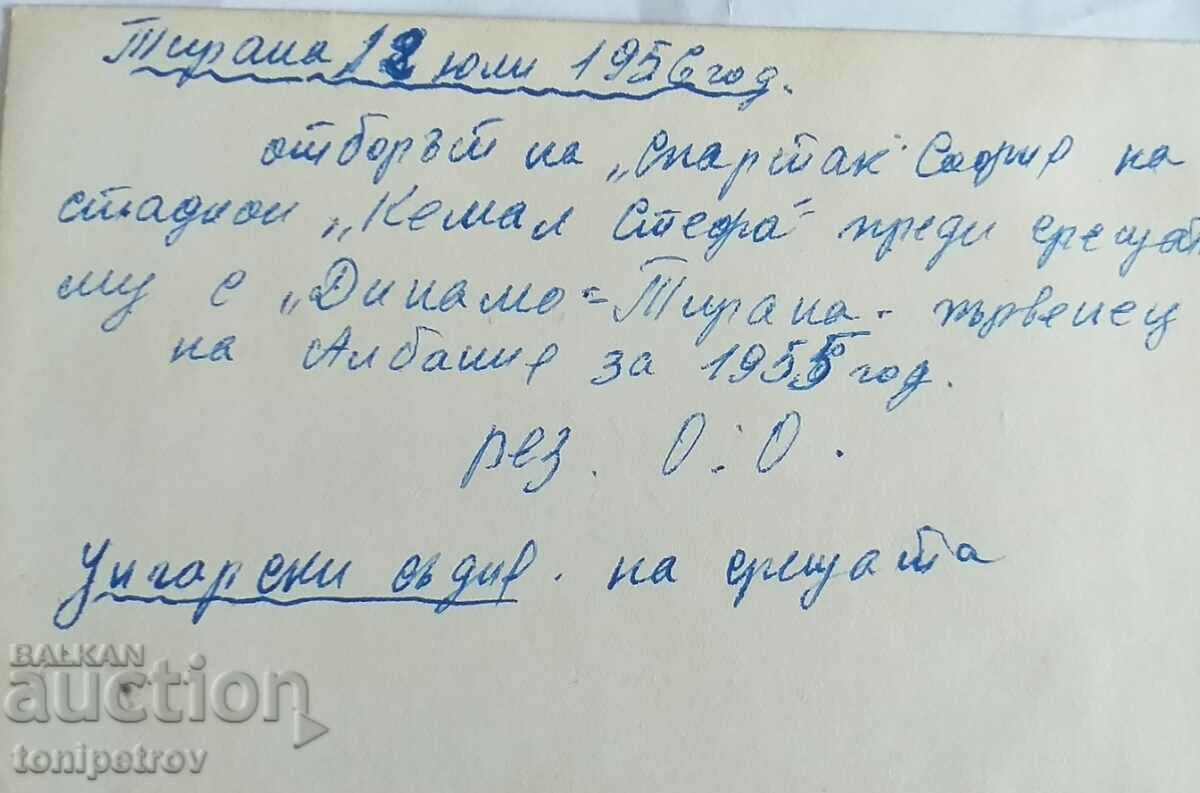 Тирана 12 юли 1956 год.
отборът на „Спартак" София на
стадион „Кемал Стефа" преди срещат
му с „Динамо"-Тирана - първенец
на Албания за 1955 год.
рез. 0:0.
Унгарски съдия. на срещата
BALKAN
auction
tonipetrov